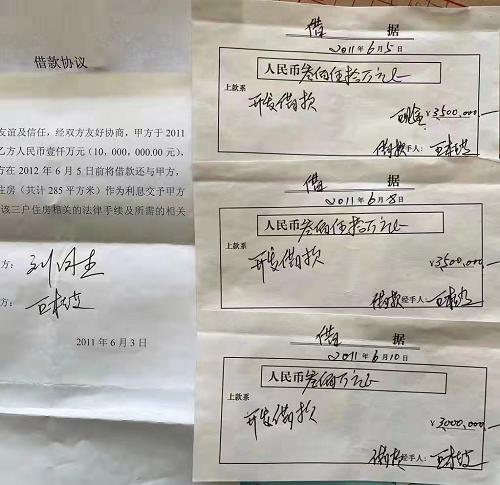 借款协议
友谊及信任，经双方友好协商，甲方于 2011
乙方人民币壹仟万元（10，000，000.00 元），
方在 2012 年 6 月 5 日前将借款还与甲方，
住房（共计 285 平方米）作为利息交予甲方
该三户住房相关的法律手续及所需的相关
方：
方：
2011 年 6 月 3 日
借 据
2011 年 6 月 5 日
人民币 叁佰伍拾万元正
上款系
开发借款
现金 ¥3,500,000
借款 经手人：
借 据
2011 年 6 月 8 日
人民币 叁佰伍拾万元正
上款系
开发借款
¥3,500,000
借款 经手人：
借 据
2011 年 6 月 10 日
人民币 叁佰万元正
上款系
开发借款
¥3,000,000
借款 经手人：